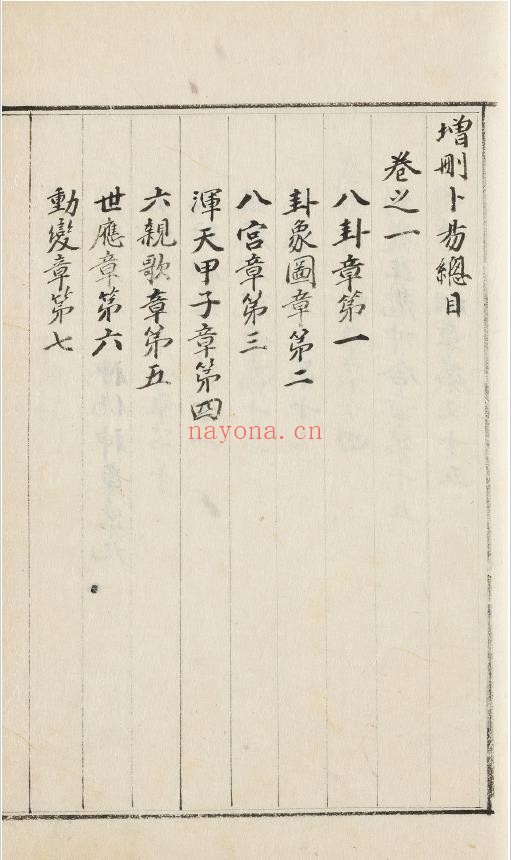 增刪卜易總目
卷之一
八卦章第一
卦象圖章第二
八宮章第三
渾天甲子章第四
六親歌章第五
世應章第六
動變章第七
nayona.cn